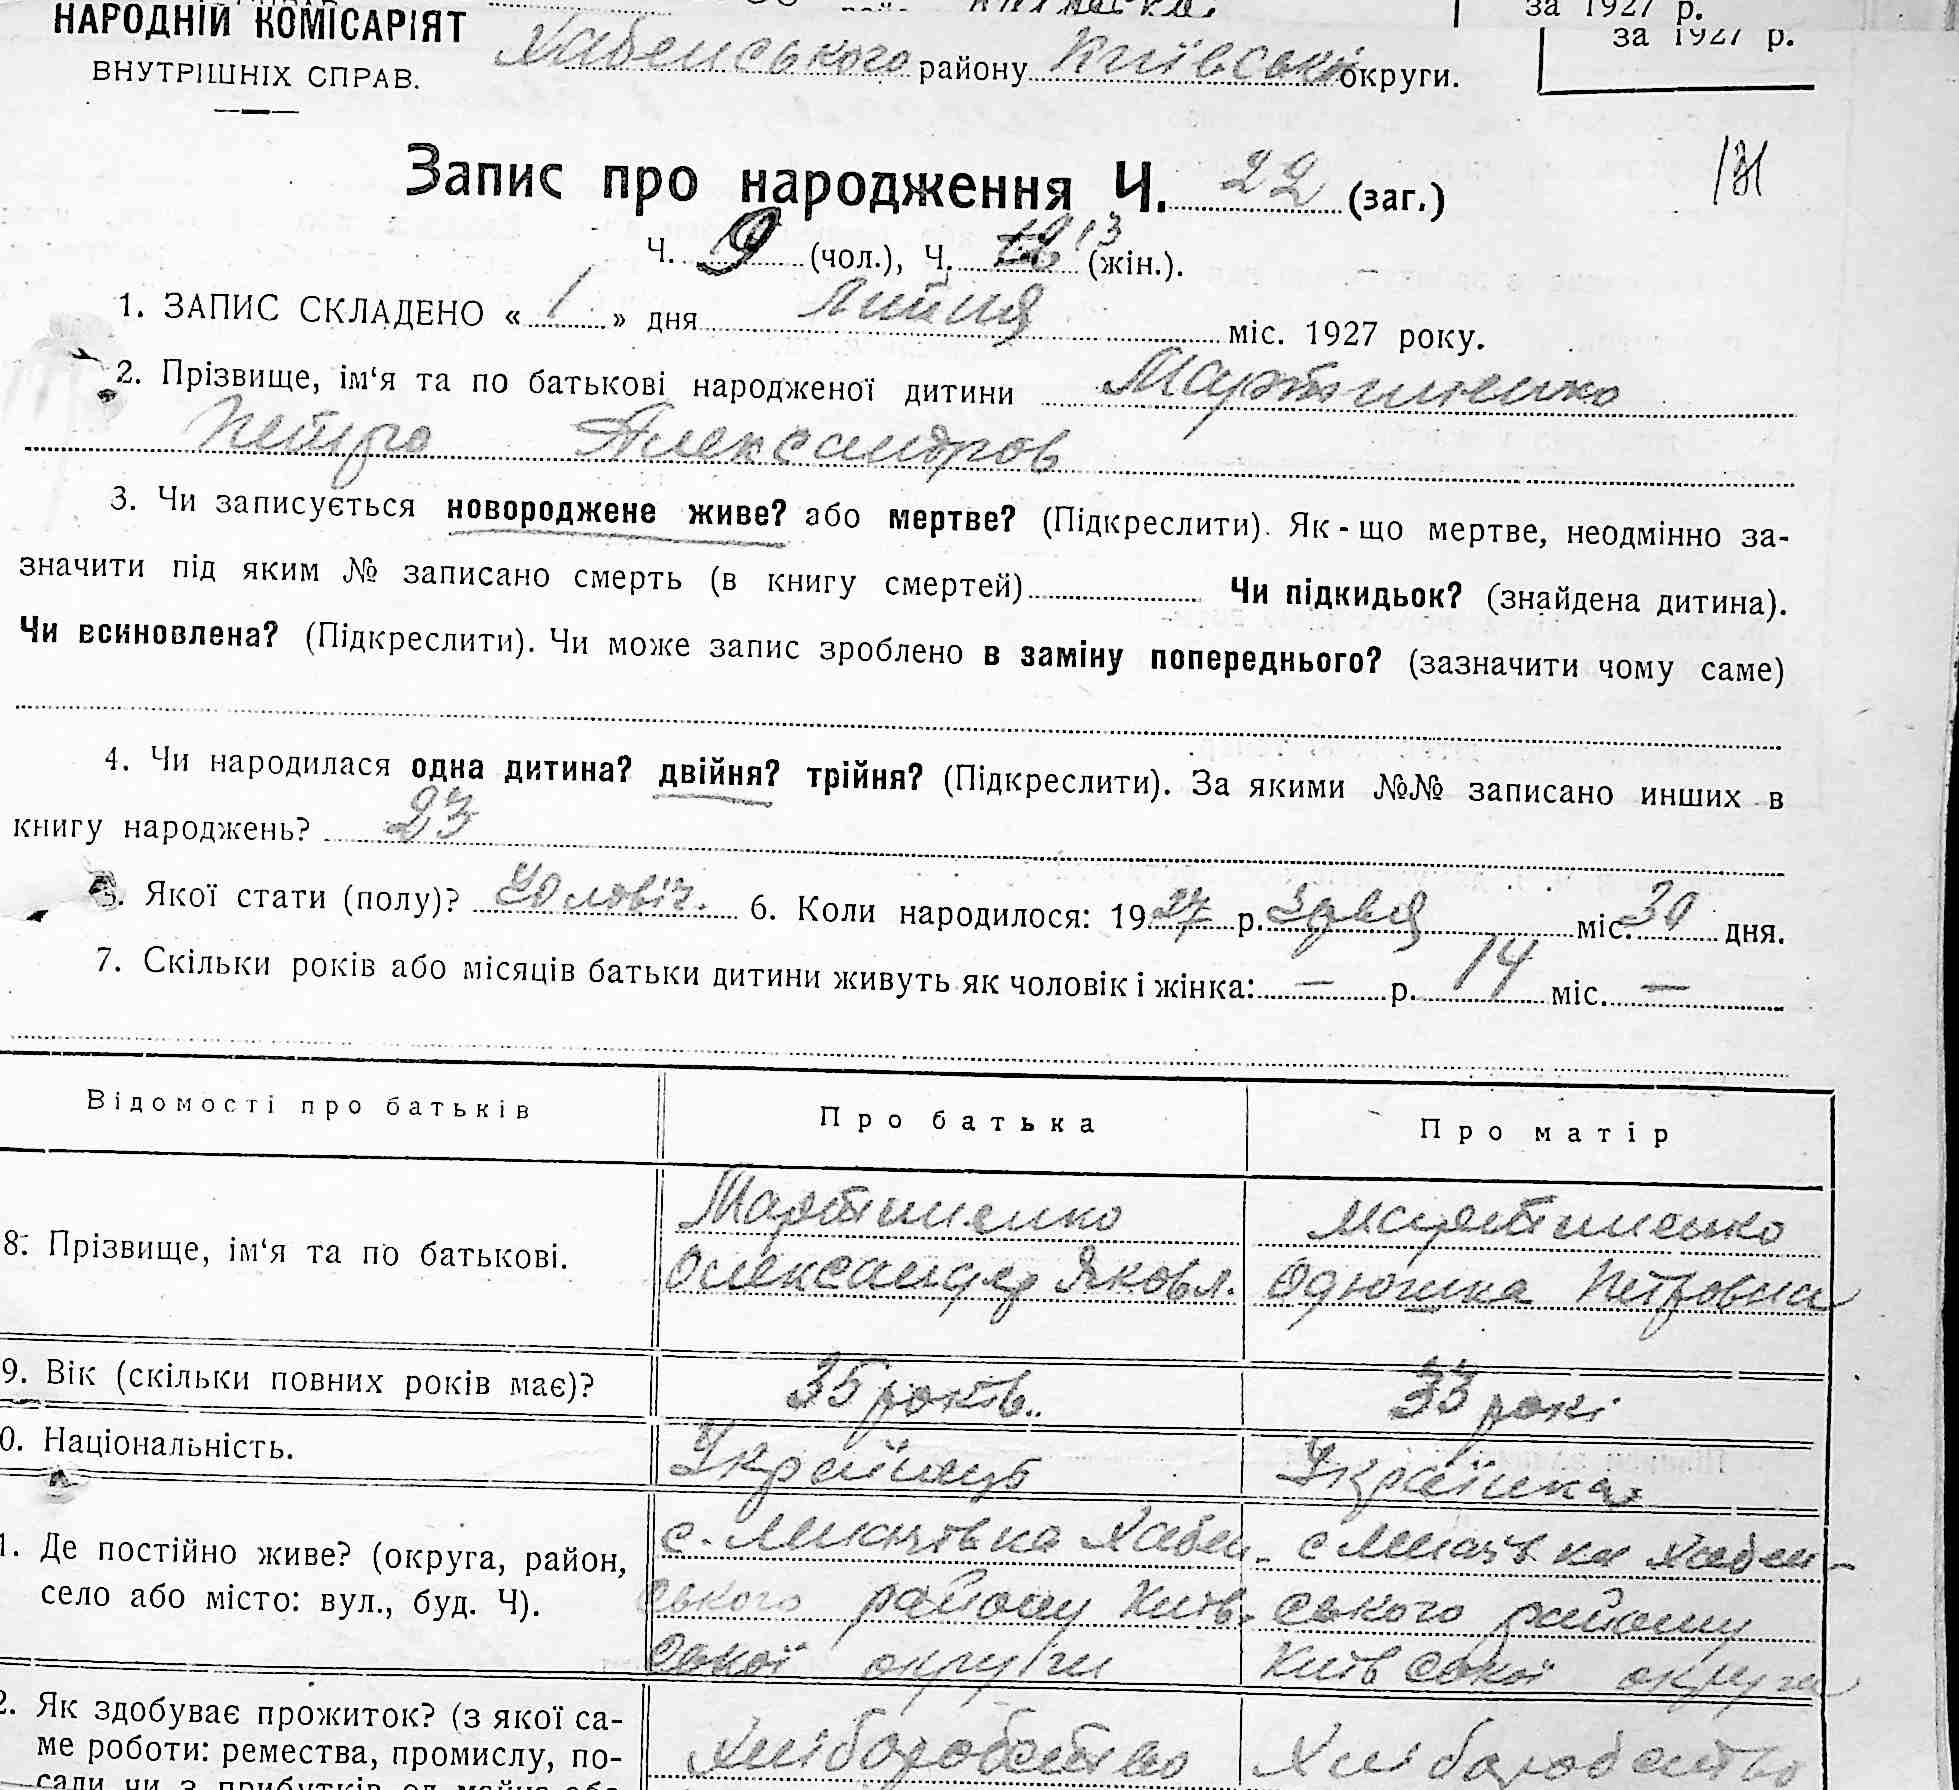 за 1927 р.
НАРОДНІЙ КОМІСАРІЯТ
за 1927 р.
ВНУТРІШНІХ СПРАВ.
Хабенського району Київської округи.
Запис про народження Ч. 22 (заг.)
181
Ч. 9 (чол.), Ч. 13 (жін.).
1. ЗАПИС СКЛАДЕНО « 1 » дня Липня міс. 1927 року.
2. Прізвище, ім‘я та по батькові народженої дитини Мартиненко
Петро Александров
3. Чи записується новороджене живе? або мертве? (Підкреслити). Як-що мертве, неодмінно за-
значити під яким № записано смерть (в книгу смертей) Чи підкидьок? (знайдена дитина).
Чи всиновлена? (Підкреслити). Чи може запис зроблено в заміну попереднього? (зазначити чому саме)
4. Чи народилася одна дитина? двійня? трійня? (Підкреслити). За якими №№ записано инших в
книгу народжень? 23
5. Якої стати (полу)? Чоловіч. 6. Коли народилося: 1927 р. міс. 30 дня.
7. Скільки років або місяців батьки дитини живуть як чоловік і жінка: — р. 14 міс. —
Відомості про батьків Про батька Про матір
Мартиненко Мартиненко
8. Прізвище, ім‘я та по батькові. Олександр Яковл. Петровна
9. Вік (скільки повних років має)? 35 років. 33 рокі
0. Національність. Українць Українка
1. Де постійно живе? (округа, район, с. Хабен- с Хабен-
село або місто: вул., буд. Ч). ського району Київ- ського району
ської округи Київської округи
2. Як здобуває прожиток? (з якої са-
ме роботи: ремества, промислу, по- Хліборобство Хліборобство
сади чи з прибутків од майна або